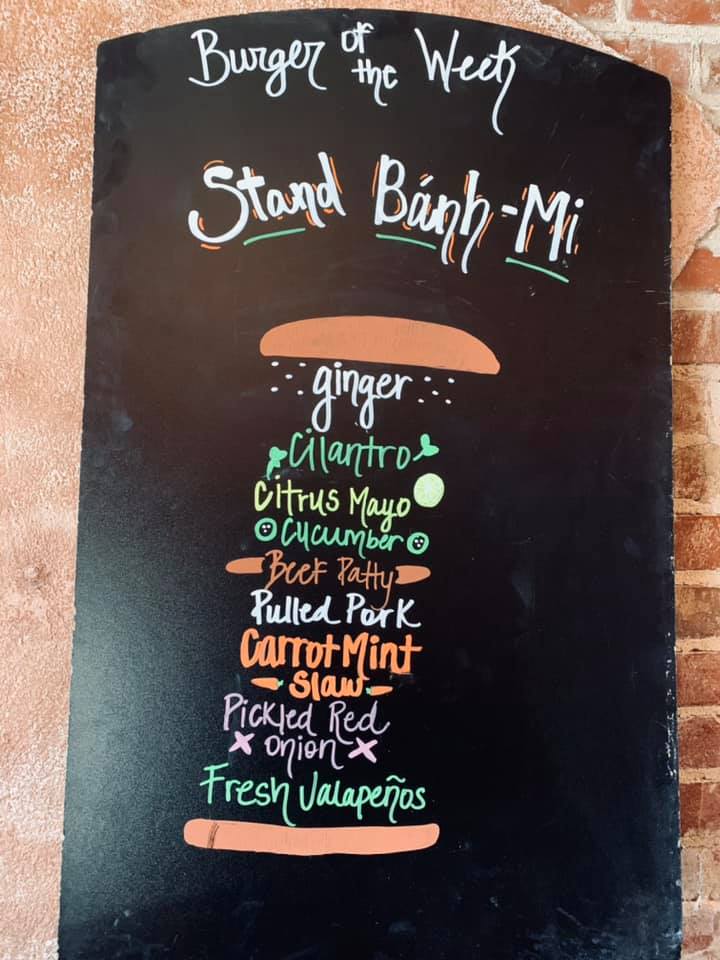 Burger of the Week
Stand Bánh-Mi
ginger
Cilantro
Citrus Mayo
Cucumber
Beef Patty
Pulled Pork
Carrot Mint
Slaw
Pickled Red
Onion
Fresh Jalapeños